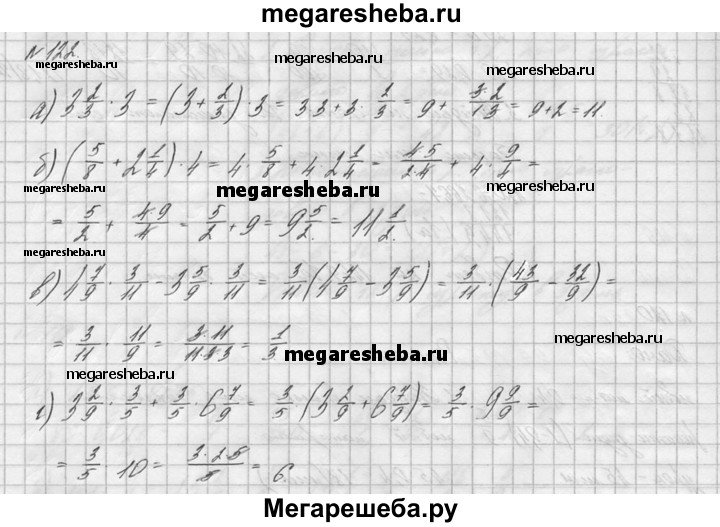 megaresheba.ru
№122.
megaresheba.ru
megaresheba.ru
megaresheba.ru
а) 3 2/3 · 3 = (3 + 2/3) · 3 = 3·3 + 3 · 2/3 = 9 + 3·2/1·3 = 9+2 = 11.
б) (5/8 + 2 1/4) · 4 = 4 · 5/8 + 4 · 2 1/4 = 4·5/2·4 + 4 · 9/4 =
megaresheba.ru
megaresheba.ru
= 5/2 + 4·9/4 = 5/2 + 9 = 9 5/2 = 11 1/2.
megaresheba.ru
в) 4 7/9 · 3/11 - 3 5/9 · 3/11 = 3/11 (4 7/9 - 3 5/9) = 3/11 · (43/9 - 32/9) =
= 3/11 · 11/9 = 3·11/11·3·3 = 1/3
megaresheba.ru
megaresheba.ru
megaresheba.ru
г) 3 2/9 · 3/5 + 3/5 · 6 7/9 = 3/5 (3 2/9 + 6 7/9) = 3/5 · 9 9/9 =
= 3/5 · 10 = 3·2·5/5 = 6.
Мегарешеба.ру